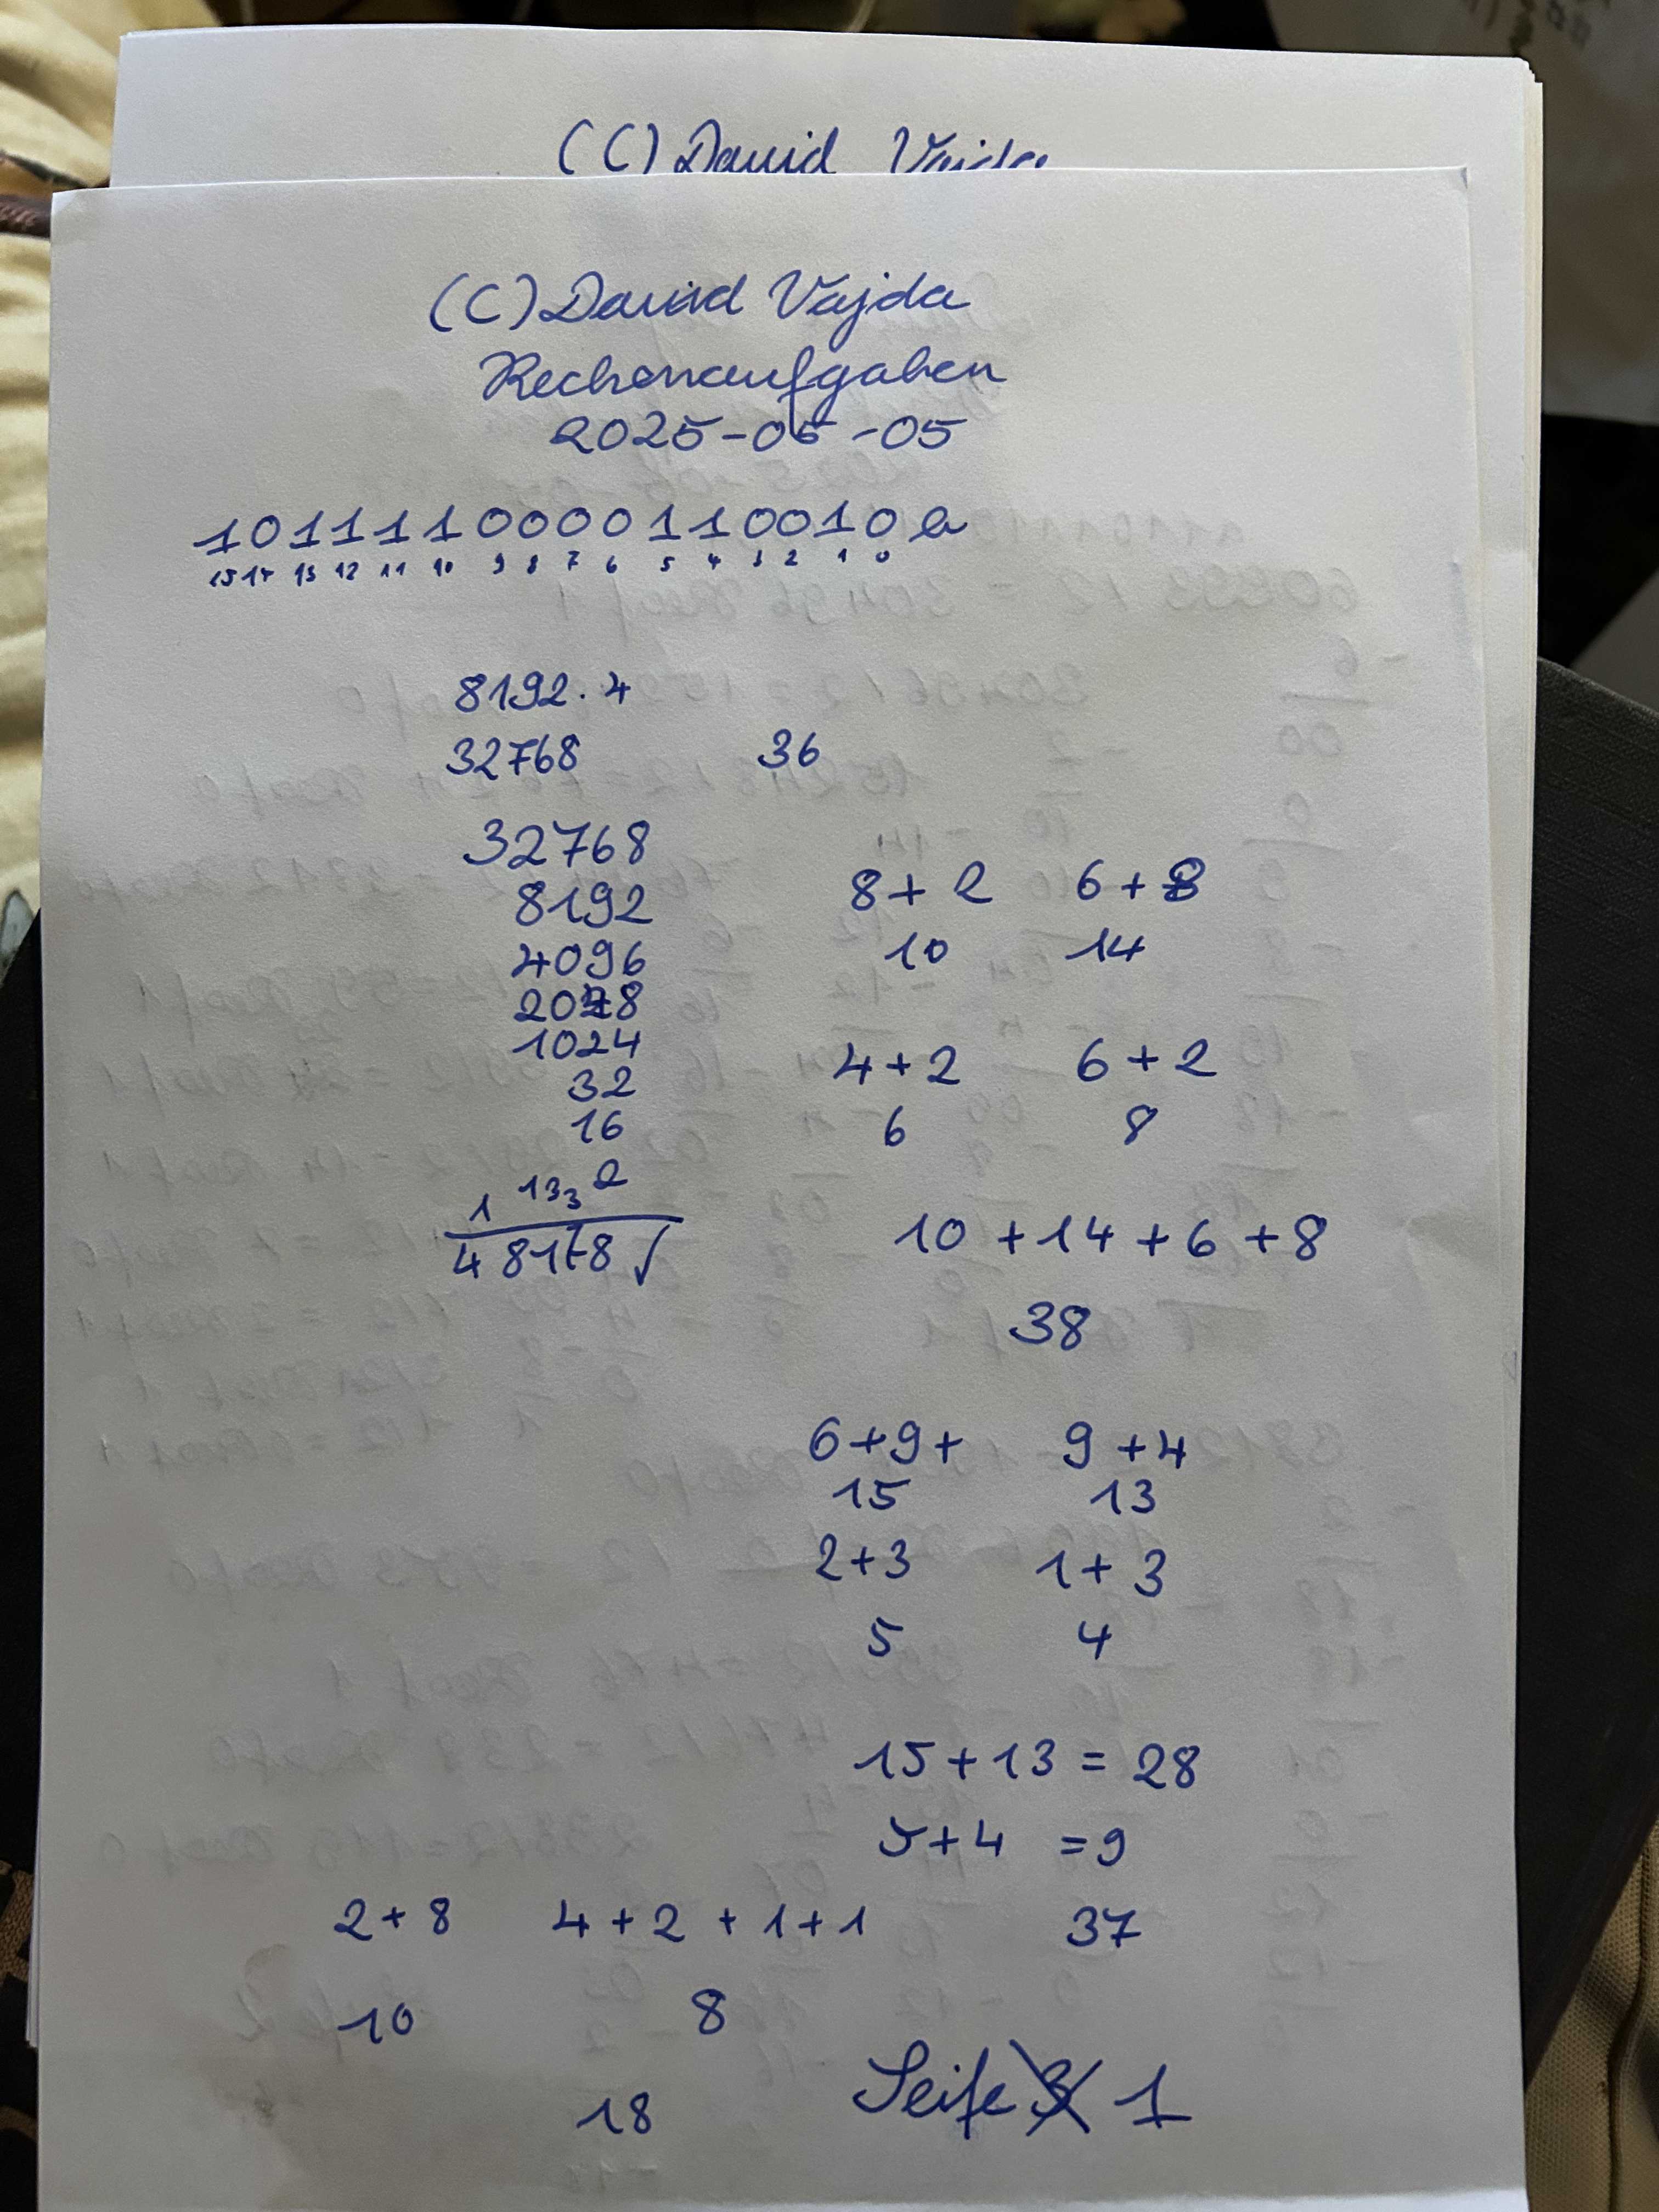 (C) David Vajda
(C) David Vajda
Rechenaufgaben
2025-05-05
1011110000110010
15 14 13 12 11 10 9 8 7 6 5 4 3 2 1 0
8192·4
32768 36
32768
8192 8+2 6+8
4096 10 14
2048
1024 4+2 6+2
32
16 6 8
1 13 3 2
48178 10+14+6+8
38
6+9+ 9+4
15 13
2+3 1+3
5 4
15+13=28
5+4 =9
2+8 4+2+1+1 37
10 8
18 Seite 1